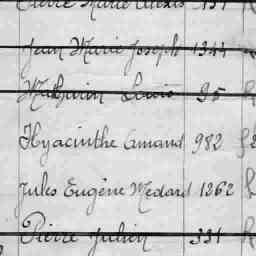 Pierre Marie Alexis 151
Jean Marie Joseph 1344
Mathurin Louis 95
Hyacinthe Amand 982
Jules Eugène Medard 1262
Pierre Julien 331